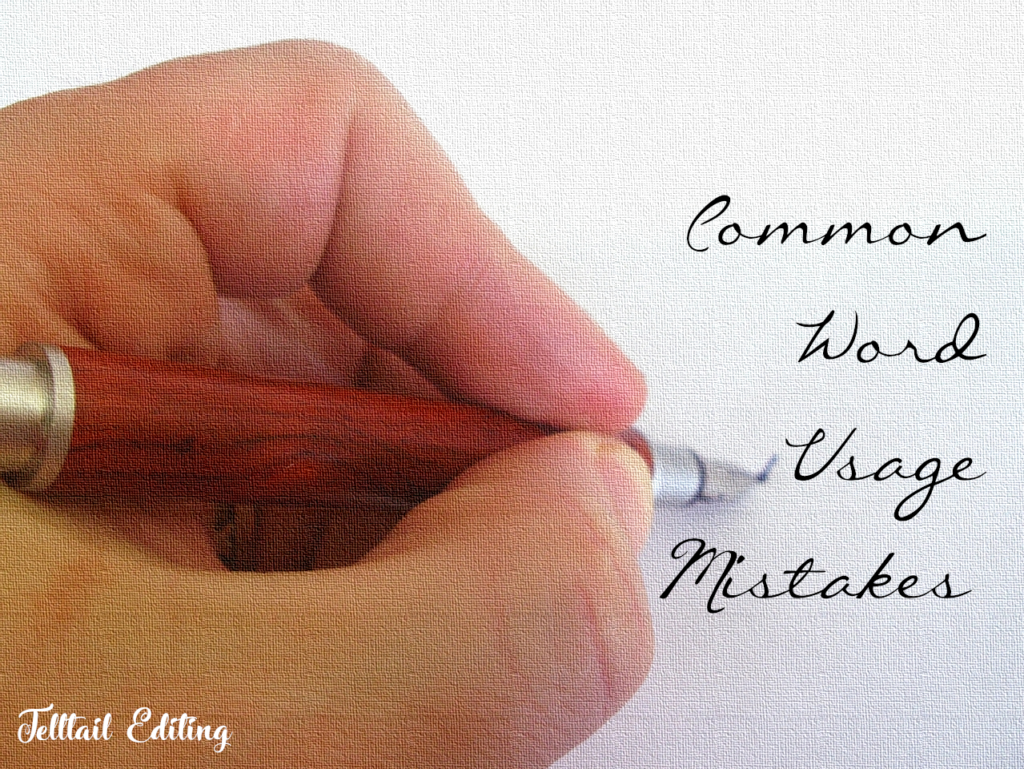 Common
Word
Usage
Mistakes
Telltail Editing